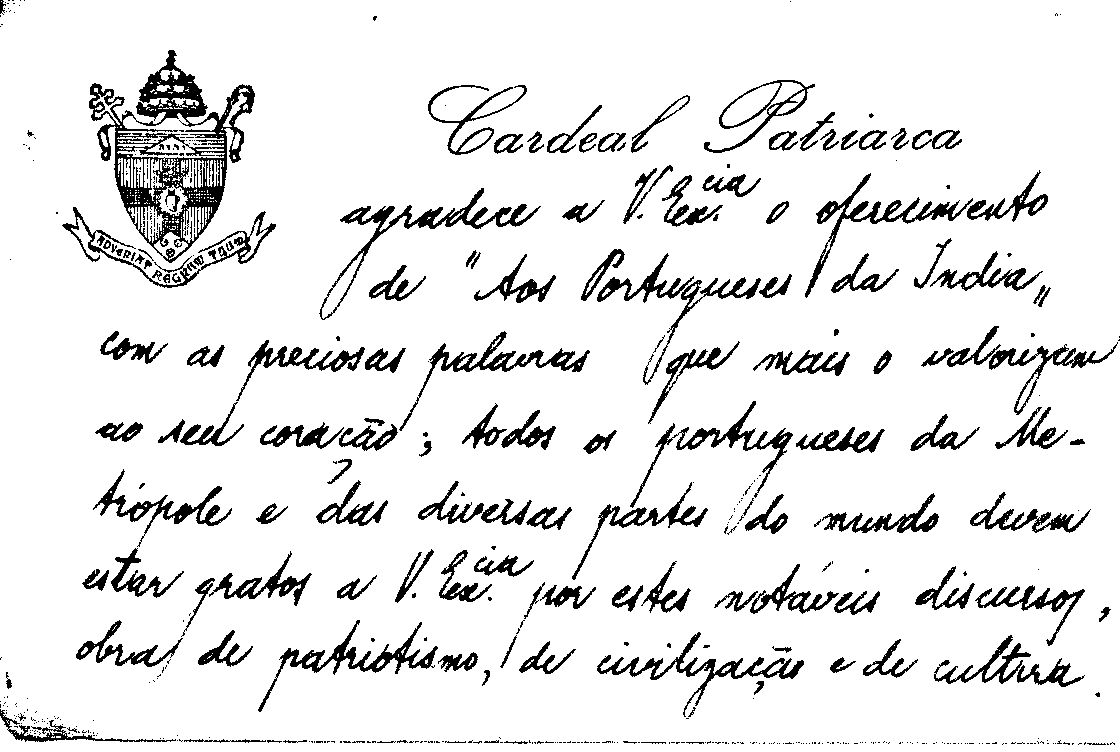 ADVENIAT REGNUM TUUM
Cardeal Patriarca
agradece a V. Ex.cia o oferecimento
de "Aos Portugueses da Índia„
com as preciosas palavras que mais o valorizam
ao seu coração; todos os portugueses da Me-
trópole e das diversas partes do mundo devem
estar gratos a V. Ex.cia por estes notáveis discursos,
obra de patriotismo, de civilização e de cultura.